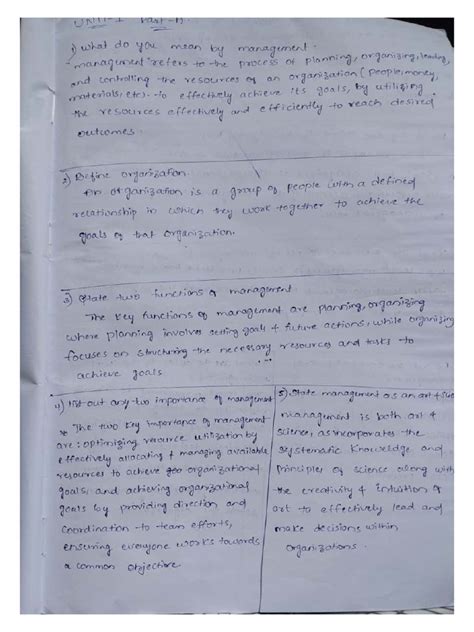 UNIT-I Part-A
1) What do you mean by management.
"management" refers to the process of planning, organizing, leading,
and controlling the resources of an organization (people, money,
materials, etc) to effectively achieve its goals, by utilizing
the resources affectively and efficiently to reach desired
outcomes.
2) Define organization.
An organization is a group of people with a defined
relationship in which they work together to achieve the
goals of that organization.
3) State two functions of management.
The key functions of management are planning, organizing
where planning involves setting goals & future actions, while organizing
focuses on structuring the necessary resources and tasks to
achieve goals
4) List out any two importance of management
* The two key importance of management
are: optimizing resource utilization by
effectively allocating & managing available
resources to achieve organizational
goals, and achieving organizational
goals by providing direction and
coordination to team efforts,
ensuring everyone works towards
a common objective.
5) State management as an art &
management is both art &
science, as incorporates the
systematic knowledge and
principles of science along with
the creativity & intuition of
art to effectively lead and
make decisions within
organizations.